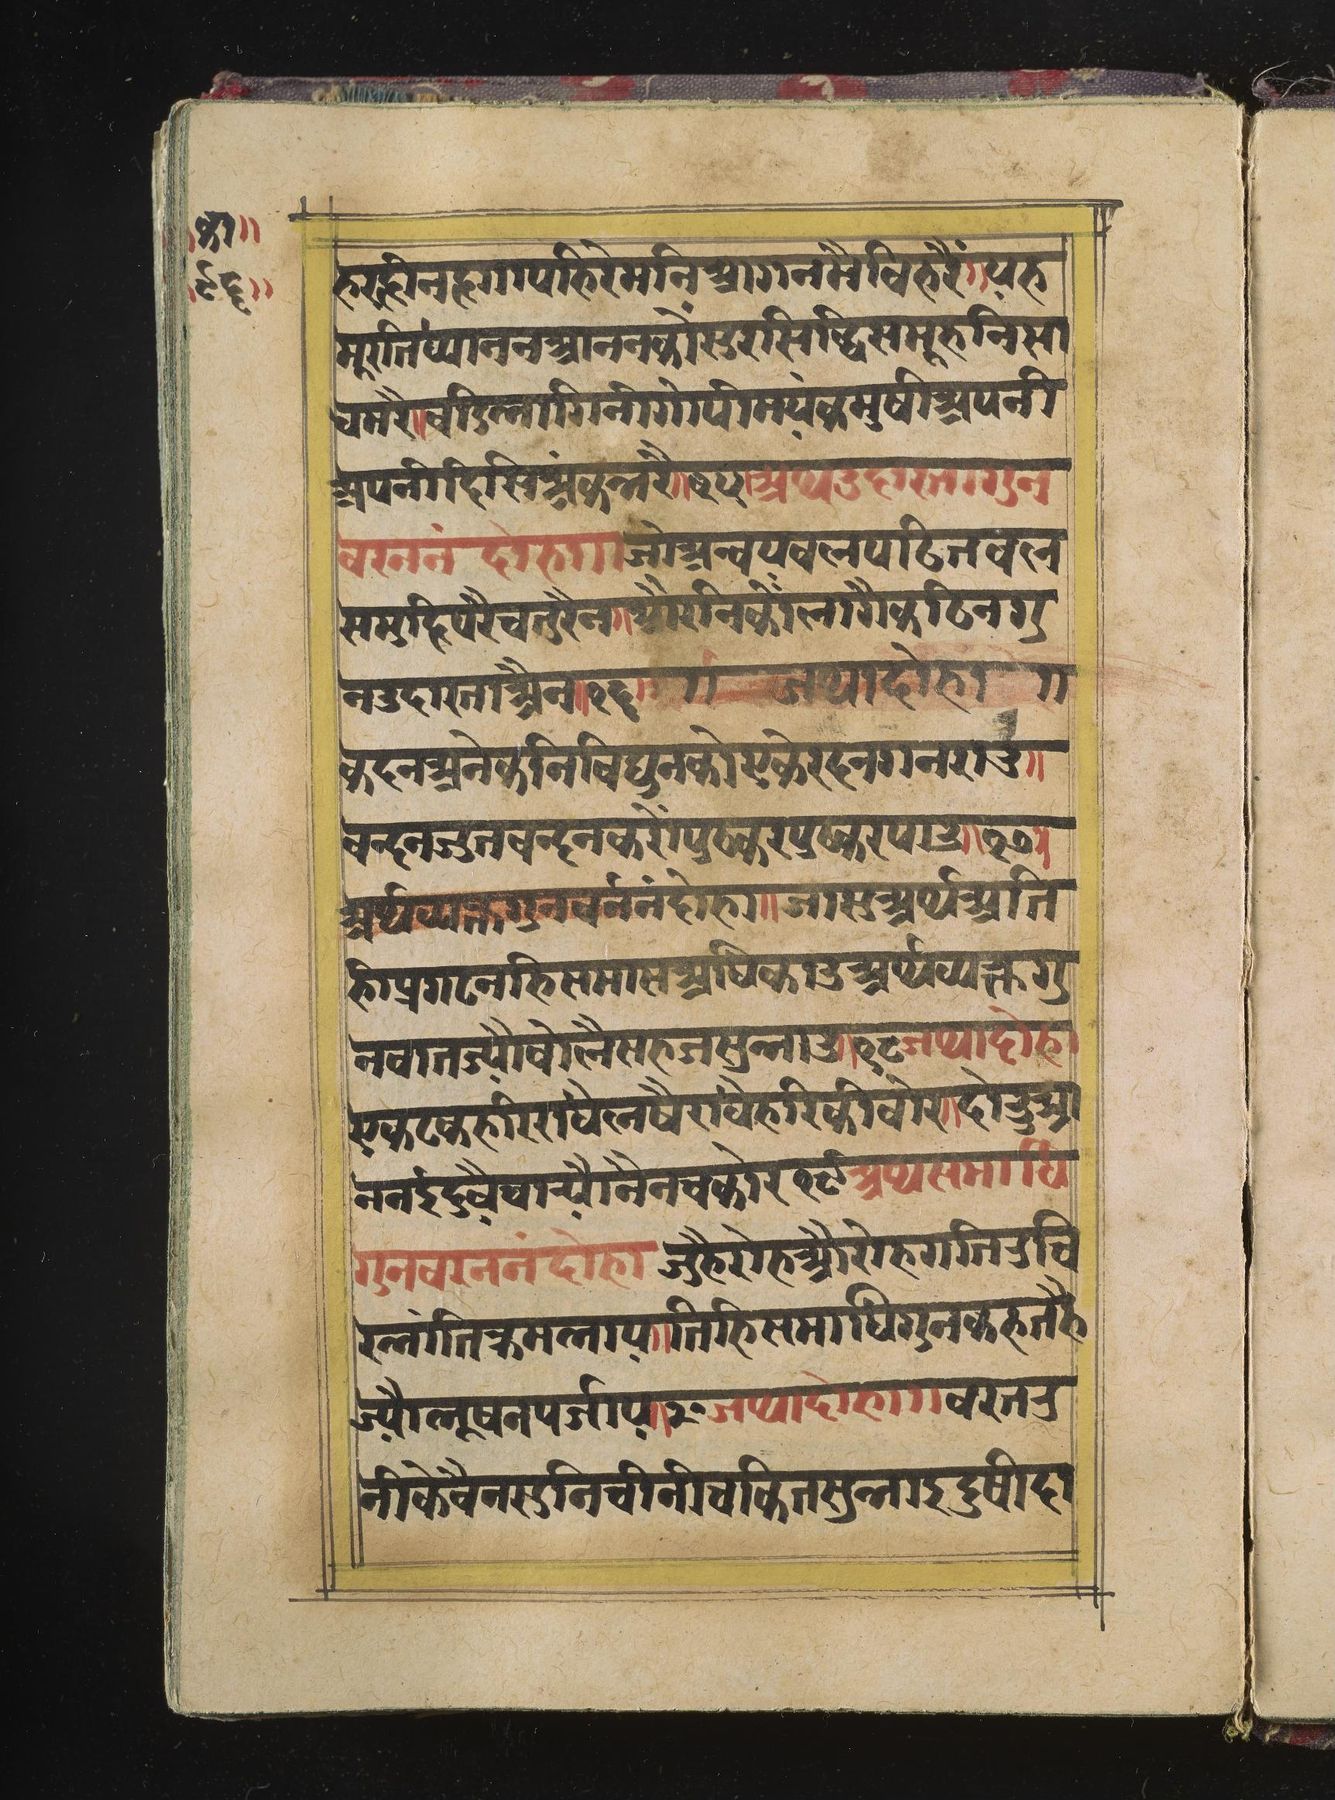 का॥
९६॥
हरहीनहगापहिरेमनिआगनमैविहरैं॥यह
मूरतिध्याननआननकौंसुरसिद्धिसमूहनिसा
धमरै॥बडिभागिनीगोपीमयंकमुषीअपनी
अपनीदिसिअंकभरै॥१५॥अथउदारतागुन
वरननं दोहा॥जोअन्वयवलपठितवल
समुझिपरैचतुरैन॥औरनिकौंलागैकठिनगु
नउदारताऔन॥१६॥ जथादोहा॥
कदनअनेकनिविघुनकोएकेरदनगनराउ॥
बन्दनजुतबन्दनकरौंपुष्करपुष्करपाउ॥१७॥
अर्थव्यक्तगुनवर्ननंदोहा॥जासुअर्थअति
हीप्रगटनहिसमासअधिकाउअर्थव्यक्तगु
नवातज्यौंबोलैसहजसुभाउ॥१८जथादोहा
एकटकहरिराधैलषैराधैहरिकीवोर॥दोउआ
ननइंदुवैचार्यौनैनचकोर१९अथसमाधि
गुनवरननंदोहा जुहैरोहऔरोहगतिरुचि
रभांतिक्रमभाय॥तिहिसमाधिगुनकहतहै
ज्यौंभूषनपर्जाय॥२०जथादोहा॥वरतरु
नीकेबैनसुनिचीनीचकितसुभाइदुषीदा